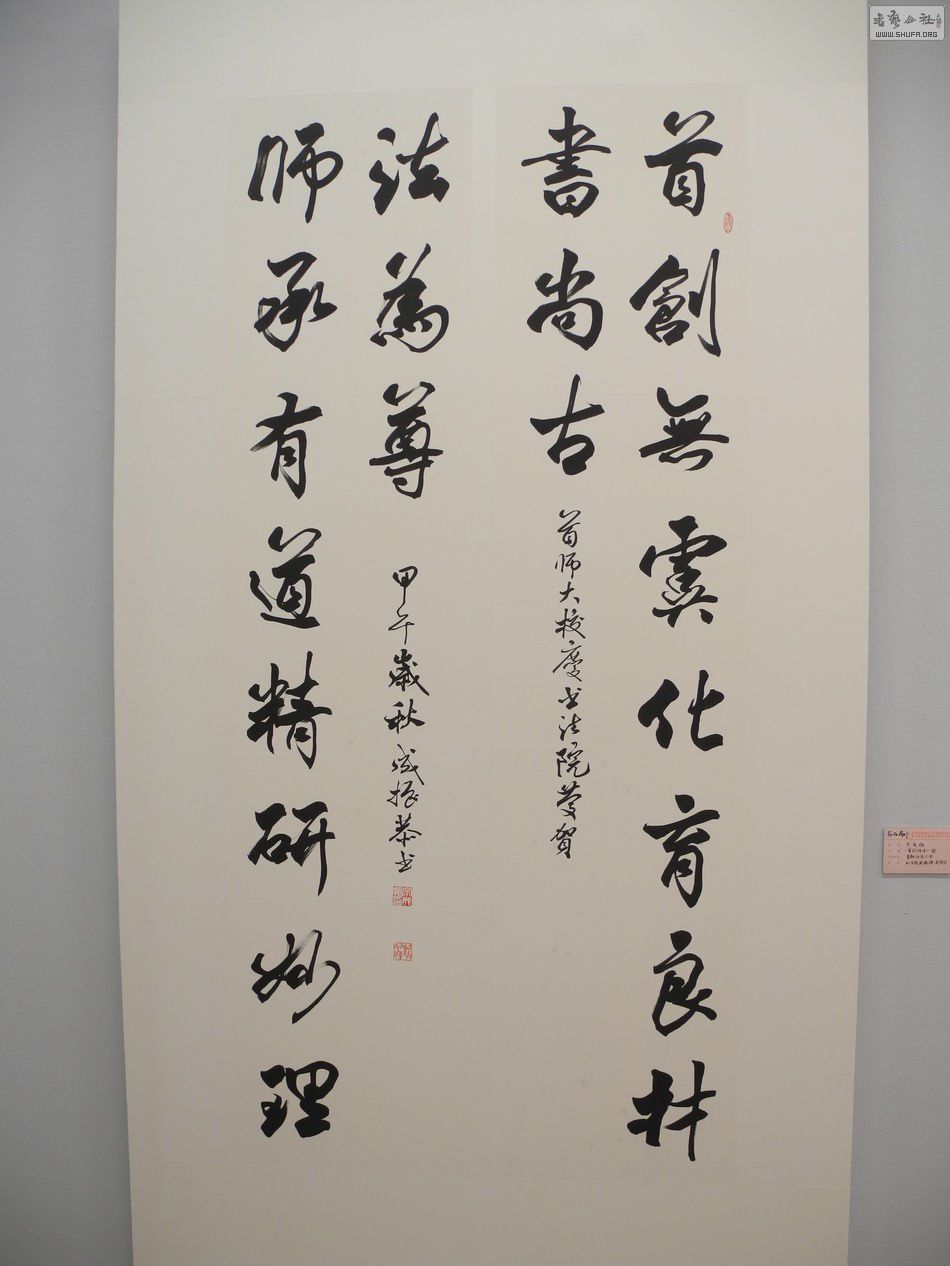 首創無虞化育良材
書尚古
首师大校慶书法院敬賀
师承有道精研妙理
法為尊
甲午歲秋振恭书
書藝公社
WWW.SHUFA.ORG